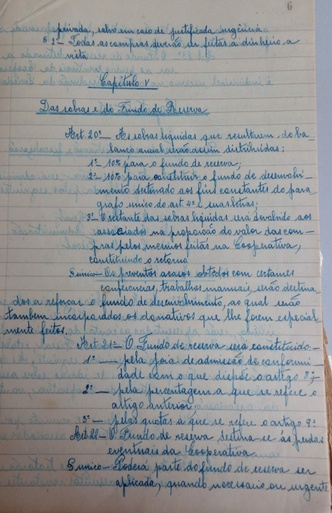 6
privada, salvo em caso de justificada urgência
§ 2º - Todas as compras deverão ser feitas a dinheiro, a
vista
Capitulo V
Das sobras e do Fundo de Reserva
Art 20º - As sobras liquidas que resultarem do ba
lanço anual serão assim distribuidas:
1º - 10% para o fundo de reserva;
2º - 10% para constituir o fundo de desenvolvi-
mento destinado aos fins constantes do para
grafo unico do art 4º e suas letras;
3º - O restante das sobras liquidas será devolvido aos
associados na proporção do valor das com-
pras pelos mesmos feitas na Cooperativa,
constituindo o retorno
§ unico - Os proventos acaso obtidos com certames
conferencias, trabalhos manuais, serão destina
dos a reforçar o fundo de desenvolvimento, ao qual serão
tambem incorporados os donativos que lhe forem especial
mente feitos.
Art 21º - O Fundo de reserva será constituido:-
1º - pela joia de admissão de conformi
dade com o que dispõe o artigo 8º;-
2º - pela percentagem a que se refere o
artigo anterior
3º - pelas quotas a que se refere o artigo 9º
Art 22 - O Fundo de reserva destina-se ás perdas
eventuais da Cooperativa
§ unico - Poderá parte do fundo de reserva ser
aplicada, quando necessario ou urgente